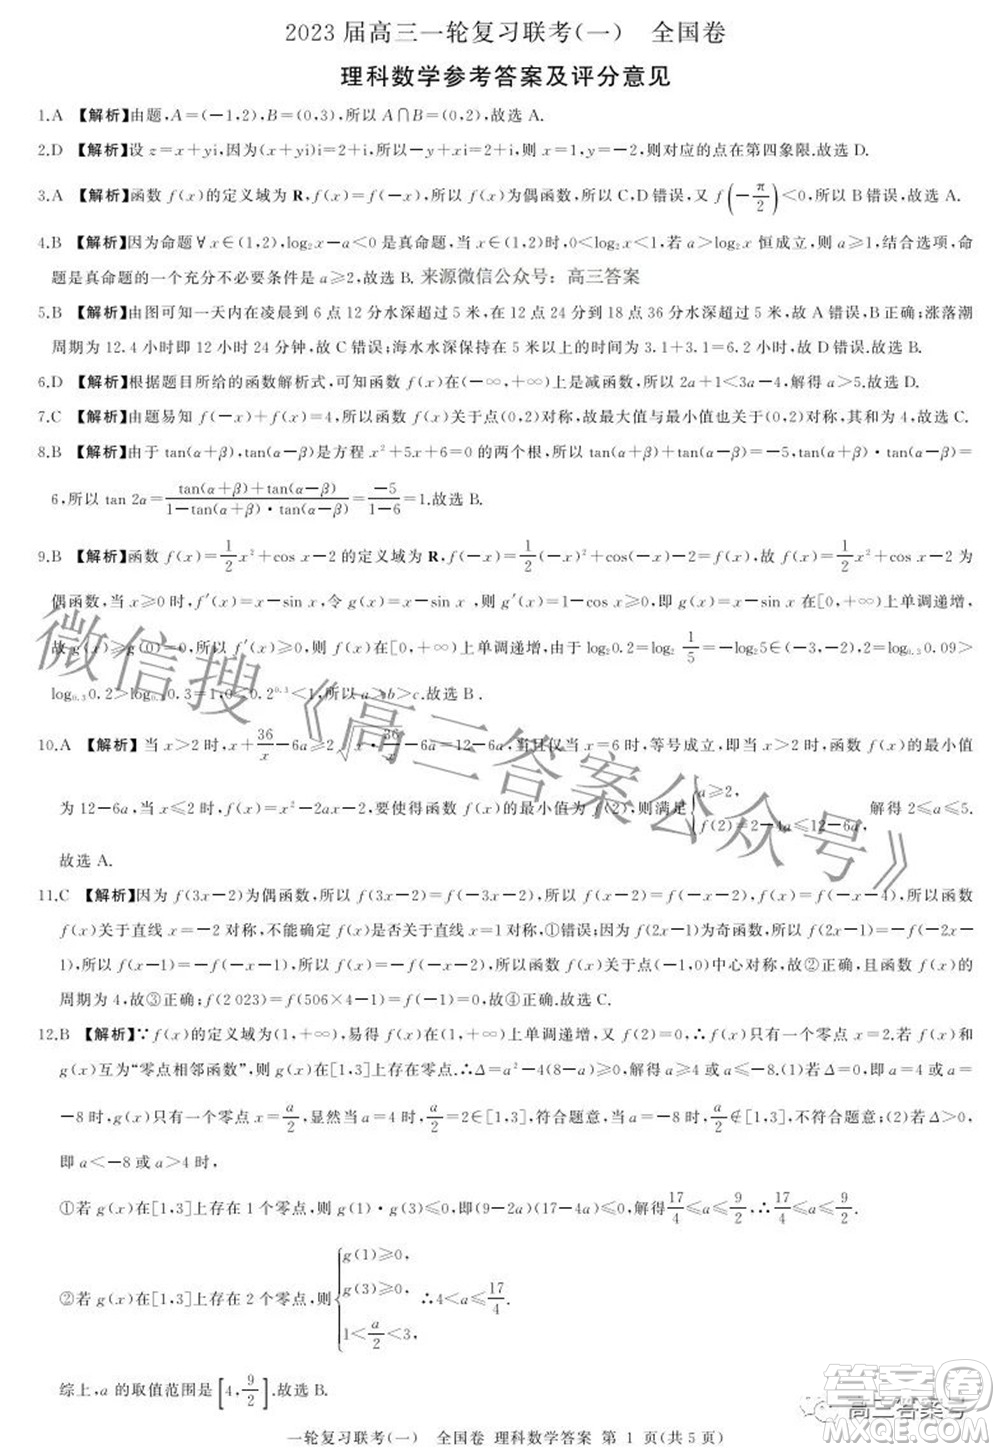 2023 届高三一轮复习联考(一) 全国卷
理科数学参考答案及评分意见
1.A 【解析】由题,A=(-1,2),B=(0,3),所以 A∩B=(0,2),故选 A.
2.D 【解析】设 z=x+yi,因为(x+yi)i=2+i,所以-y+xi=2+i,则 x=1,y=-2,则对应的点在第四象限.故选 D.
3.A 【解析】函数 f(x)的定义域为 R,f(x)=f(-x),所以 f(x)为偶函数,所以 C,D 错误,又 f(-π/2)<0,所以 B 错误,故选 A.
4.B 【解析】因为命题∀x∈(1,2),log₂x-a<0 是真命题,当 x∈(1,2)时,0<log₂x<1,若 a>log₂x 恒成立,则 a≥1,结合选项,命
题是真命题的一个充分不必要条件是 a≥2,故选 B. 来源微信公众号：高三答案
5.B 【解析】由图可知一天内在凌晨到 6 点 12 分水深超过 5 米,在 12 点 24 分到 18 点 36 分水深超过 5 米,故 A 错误,B 正确;涨落潮
周期为 12.4 小时即 12 小时 24 分钟,故 C 错误;海水水深保持在 5 米以上的时间为 3.1+3.1=6.2 小时,故 D 错误.故选 B.
6.D 【解析】根据题目所给的函数解析式,可知函数 f(x)在(-∞,+∞)上是减函数,所以 2a+1<3a-4,解得 a>5.故选 D.
7.C 【解析】由题易知 f(-x)+f(x)=4,所以函数 f(x)关于点(0,2)对称,故最大值与最小值也关于(0,2)对称,其和为 4,故选 C.
8.B 【解析】由于 tan(α+β),tan(α-β)是方程 x²+5x+6=0 的两个根,所以 tan(α+β)+tan(α-β)=-5,tan(α+β)·tan(α-β)=
6,所以 tan 2α=(tan(α+β)+tan(α-β))/(1-tan(α+β)·tan(α-β))=-5/(1-6)=1.故选 B.
9.B 【解析】函数 f(x)=1/2x²+cos x-2 的定义域为 R,f(-x)=1/2(-x)²+cos(-x)-2=f(x),故 f(x)=1/2x²+cos x-2 为
偶函数,当 x≥0 时,f′(x)=x-sin x,令 g(x)=x-sin x ,则 g′(x)=1-cos x≥0,所以 g(x)在[0,+∞)上单调递增,
故 g(x)≥g(0)=0,所以 f′(x)≥0,所以 f(x)在[0,+∞)上单调递增,由于 log₂0.2=log₂1/5=-log₂5∈(-3,-2),log₀.₃0.09>
log₀.₃0.2>log₀.₃0.3=1,0<0.2⁰·³<1,所以 a>b>c.故选 B .
10.A 【解析】当 x>2 时,x+36/x-6a≥2√(x·36/x)-6a=12-6a,当且仅当 x=6 时,等号成立,即当 x>2 时,函数 f(x)的最小值
为 12-6a,当 x≤2 时,f(x)=x²-2ax-2,要使得函数 f(x)的最小值为 f(2),则满足{a≥2, f(2)=2-4a≤12-6a, 解得 2≤a≤5.
故选 A.
11.C 【解析】因为 f(3x-2)为偶函数,所以 f(3x-2)=f(-3x-2),所以 f(x-2)=f(-x-2),所以 f(x)=f(-x-4),所以函数
f(x)关于直线 x=-2 对称,不能确定 f(x)是否关于直线 x=1 对称,①错误;因为 f(2x-1)为奇函数,所以 f(2x-1)=-f(-2x-
1),所以 f(x-1)=-f(-x-1),所以 f(x)=-f(-x-2),所以函数 f(x)关于点(-1,0)中心对称,故②正确;由上可知,函数 f(x)的
周期为 4,故③正确;f(2 023)=f(506×4-1)=f(-1)=0,故④正确.故选 C.
12.B 【解析】∵f(x)的定义域为(1,+∞),易得 f(x)在(1,+∞)上单调递增,又 f(2)=0,∴f(x)只有一个零点 x=2.若 f(x)和
g(x)互为“零点相邻函数”,则 g(x)在[1,3]上存在零点.∴Δ=a²-4(8-a)≥0,解得 a≥4 或 a≤-8.(1)若 Δ=0,即 a=4 或 a=
-8 时,g(x)只有一个零点 x=a/2,显然当 a=4 时,a/2=2∈[1,3],符合题意,当 a=-8 时,a/2∉[1,3],不符合题意;(2)若 Δ>0,
即 a<-8 或 a>4 时,
①若 g(x)在[1,3]上存在 1 个零点,则 g(1)·g(3)≤0,即(9-2a)(17-4a)≤0,解得17/4≤a≤9/2,∴17/4≤a≤9/2.
②若 g(x)在[1,3]上存在 2 个零点,则{g(1)≥0, g(3)≥0, 1<a/2<3, ∴4<a≤17/4.
综上,a 的取值范围是[4,9/2].故选 B.
一轮复习联考(一) 全国卷 理科数学答案 第 1 页(共 5 页)
微信搜《高三答案公众号》
答案圈
高三答案号